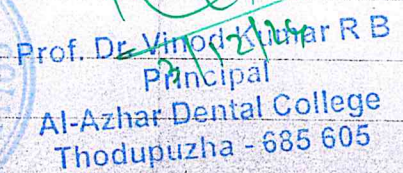 Prof. Dr. Vinod Kumar R B
Principal
Al-Azhar Dental College
Thodupuzha - 685 605